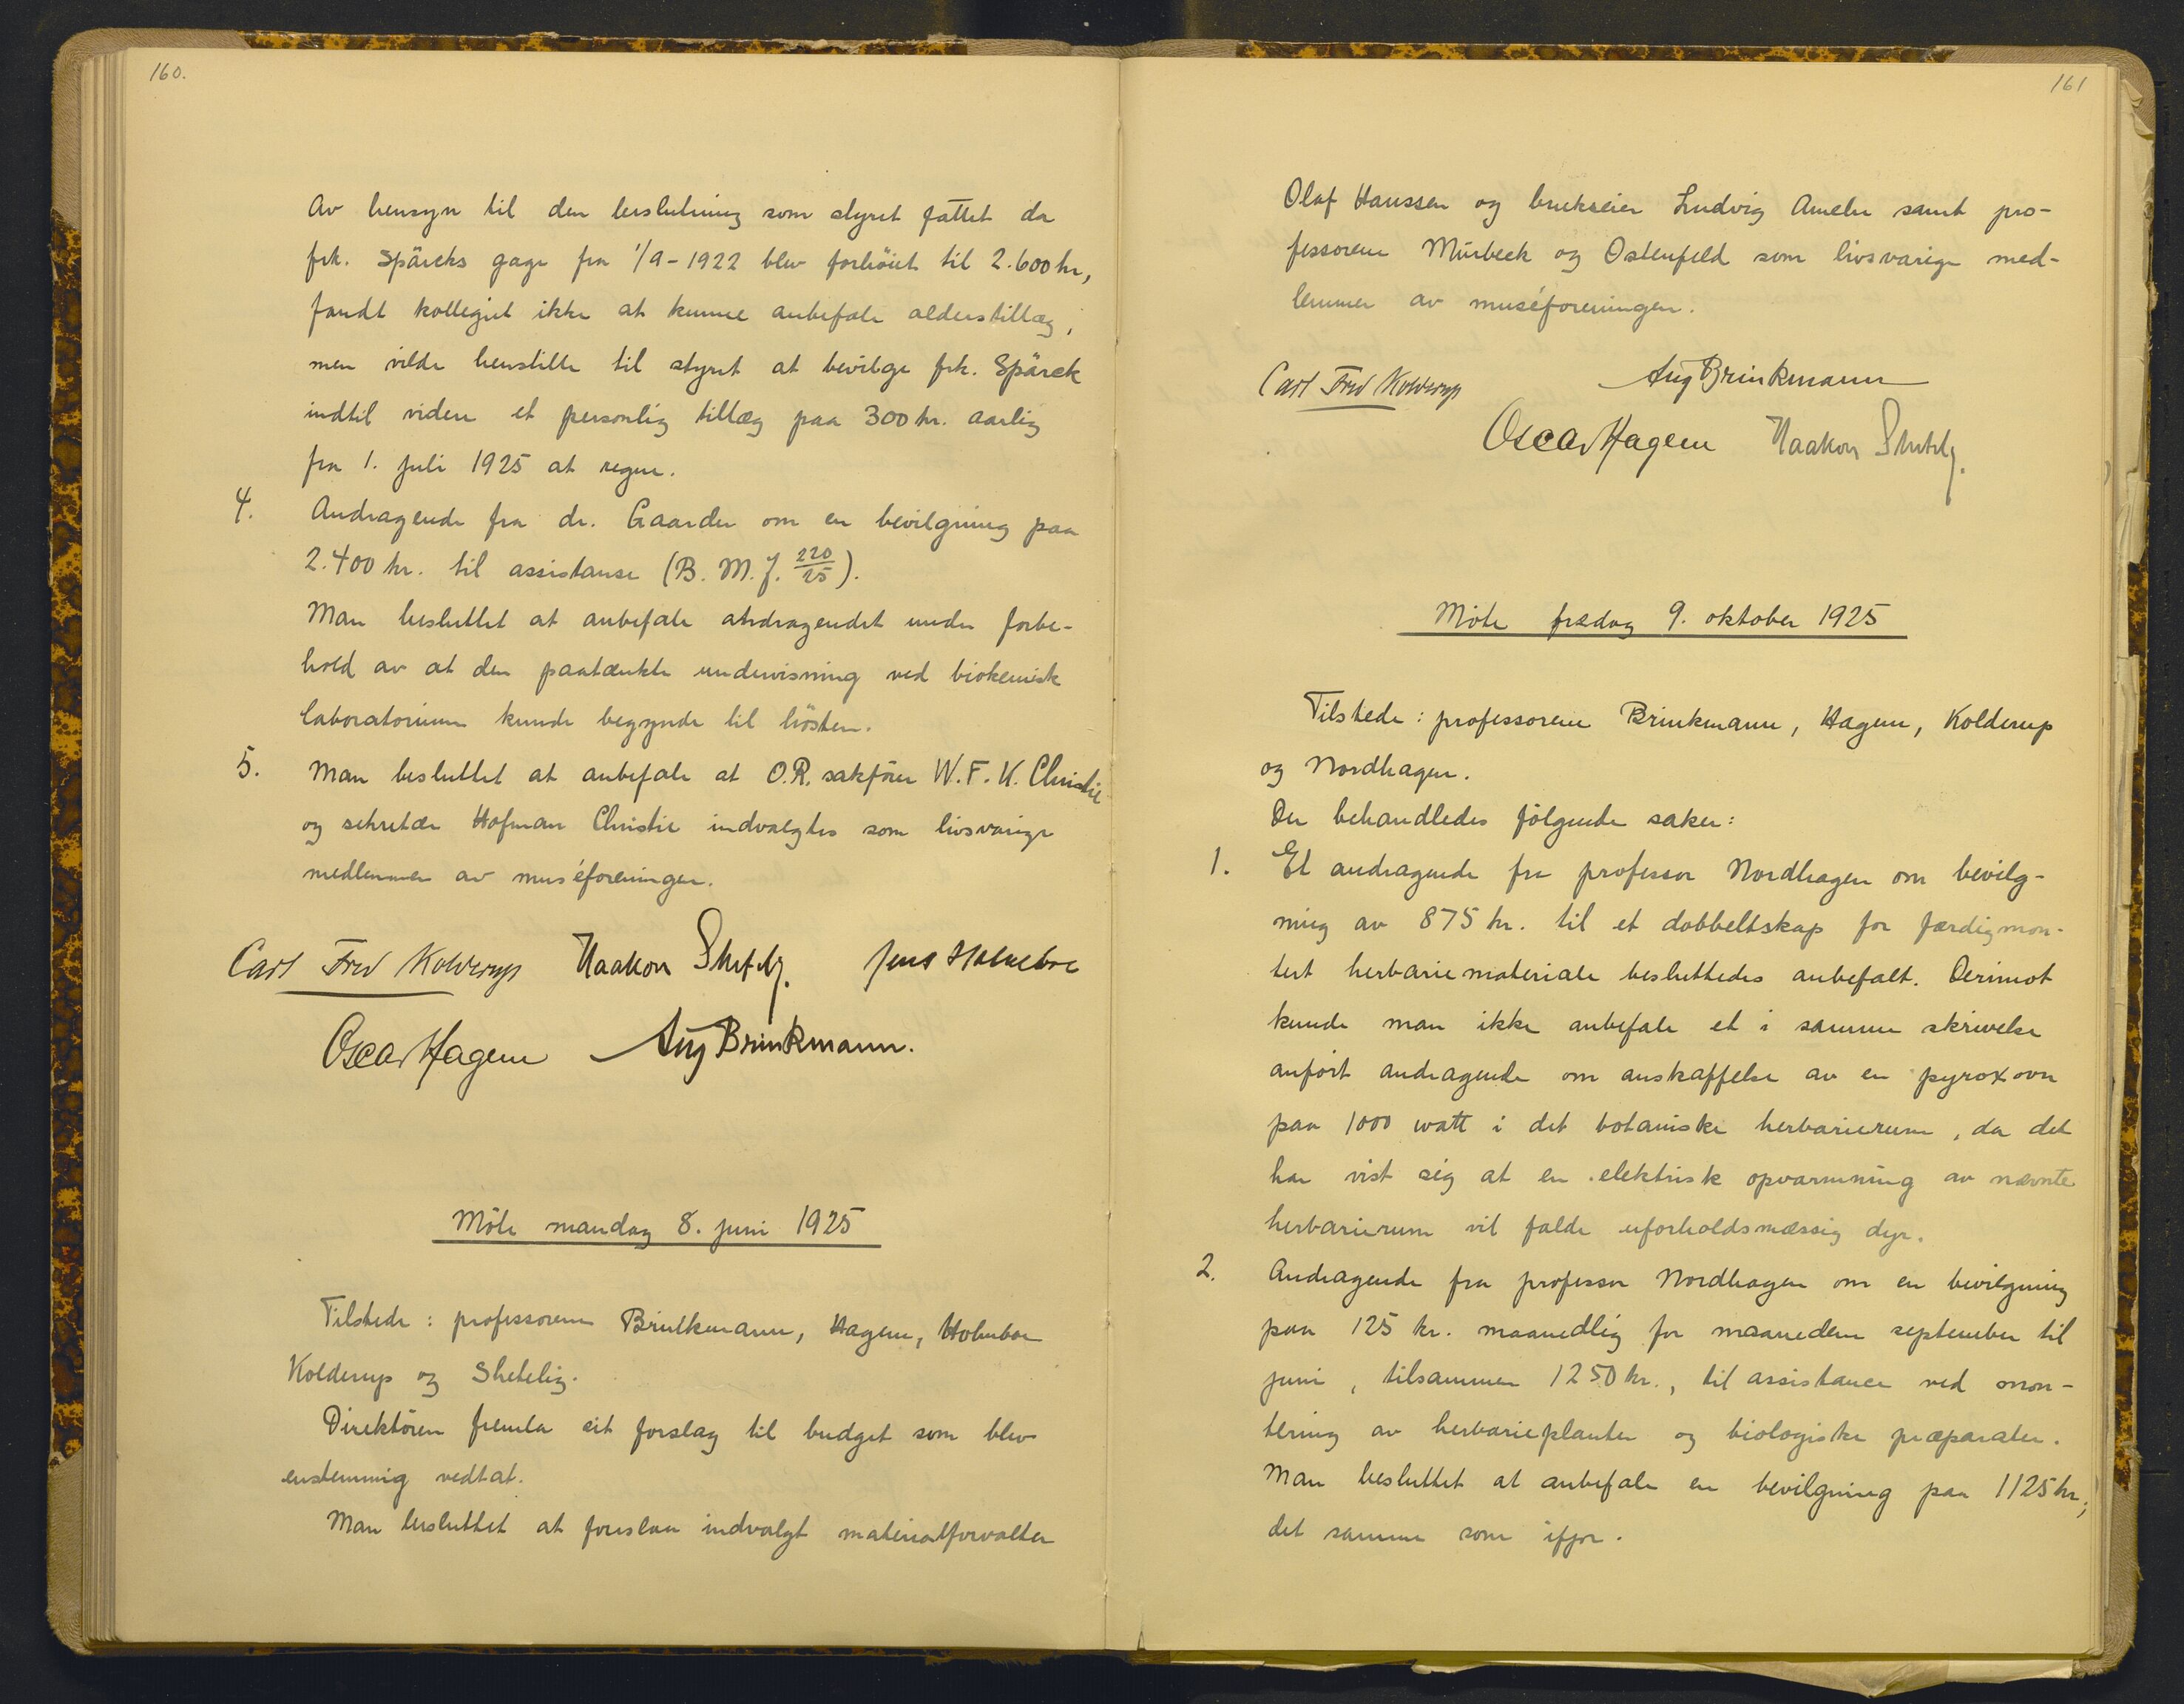 160.
Av hensyn til den beslutning som styret fattet da
frk. Spärcks gage fra 1/9-1922 blev forhöiet til 2.600 kr,
fandt kollegiet ikke at kunne anbefale alderstillæg,
men vilde henstille til styret at bevilge frk. Spärck
indtil videre et personlig tillæg paa 300 kr. aarlig
fra 1. juli 1925 at regne.
4. Andragende fra dr. Gaarder om en bevilgning paa
2.400 kr. til assistanse (B. M. J. 220/25).
Man besluttet at anbefale andragendet under forbe-
hold av at den paatænkte undervisning ved biokemisk
laboratorium kunde begynde til hösten.
5. Man besluttet at anbefale at O.R. sakförer W. F. K. Christie
og sekretær Hofman Christie indvalgtes som livsvarige
medlemmer av muséforeningen.
Carl Fred Kolderup Haakon Shetelig. Jens Holmboe
Oscar Hagem Aug Brinkmann.
Möte mandag 8. juni 1925
Tilstede: professorene Brinkmann, Hagem, Holmboe
Kolderup og Shetelig.
Direktören fremla sit forslag til budget som blev
enstemmig vedtat.
Man besluttet at foreslaa indvalgt materialforvalter
161
Olaf Hanssen og brukseier Ludvig Ameln samt pro-
fessorene Murbeck og Ostenfeld som livsvarige med-
lemmer av muséforeningen.
Carl Fred Kolderup Aug Brinkmann
Oscar Hagem Haakon Shetelig.
Möte fredag 9. oktober 1925
Tilstede: professorene Brinkmann, Hagem, Kolderup
og Nordhagen.
Der behandledes fölgende saker:
1. Et andragende fra professor Nordhagen om bevilg-
ning av 875 kr. til et dobbeltskap for færdigmon-
tert herbariemateriale besluttedes anbefalt. Derimot
kunde man ikke anbefale et i samme skrivelse
anfört andragende om anskaffelse av en pyroxovn
paa 1000 watt i det botaniske herbarierum, da det
har vist sig at en elektrisk opvarmning av nævnte
herbarierum vil falde uforholdsmæssig dyr.
2. Andragende fra professor Nordhagen om en bevilgning
paa 125 kr. maanedlig for maanedene september til
juni, tilsammen 1250 kr., til assistance ved mon-
tering av herbarieplanter og biologiske præparater.
Man besluttet at anbefale en bevilgning paa 1125 kr,
det samme som ifjor.